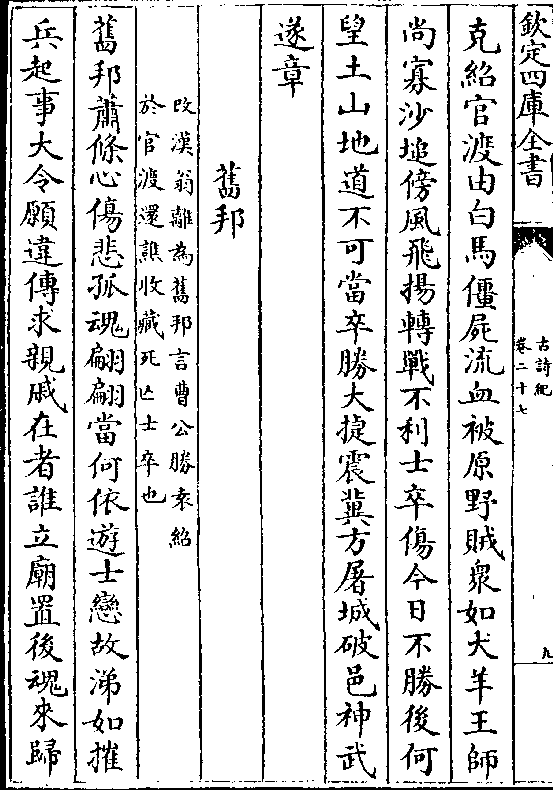 欽定四庫全書
古詩紀
卷二十七
九
克紹官渡由白馬僵屍流血被原野賊衆如犬羊王師
尚寡沙塠傍風飛揚轉戰不利士卒傷今日不勝後何
望土山地道不可當卒勝大捷震冀方屠城破邑神武
遂章
舊邦
改漢翁離為舊邦言曹公勝袁紹
於官渡還譙收藏死亡士卒也
舊邦蕭條心傷悲孤魂翩翩當何依遊士戀故涕如摧
兵起事大令願違傳求親戚在者誰立廟置後魂來歸